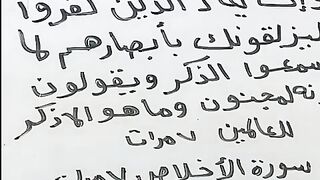 وإن يكاد الذين كفروا
ليزلقونك بأبصارهم لما
سمعوا الذكر ويقولون
إنه لمجنون وما هو الا ذكر
للعالمين ٧ مرات
سورة الأخلاص ٧ مرات